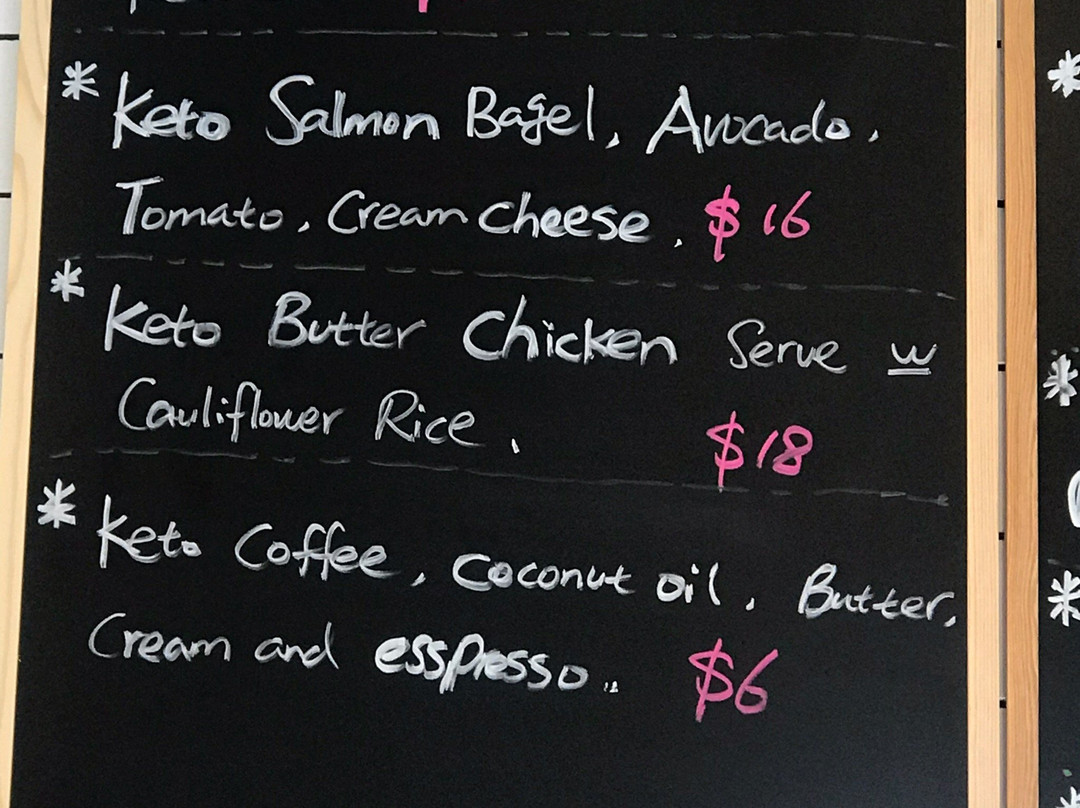 * Keto Salmon Bagel, Avocado,
Tomato, Cream cheese, $16
* Keto Butter Chicken Serve w
Cauliflower Rice, $18
* Keto Coffee, coconut oil, Butter,
Cream and esspresso.. $6
*
*
*